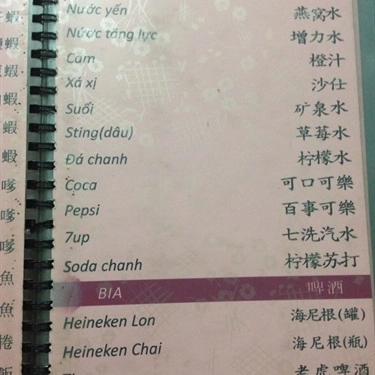 Nước yến 燕窝水
Nước tăng lực 增力水
Cam 橙汁
Xá xị 沙仕
Suối 矿泉水
Sting(dâu) 草莓水
Đá chanh 柠檬水
Coca 可口可樂
Pepsi 百事可樂
7up 七洗汽水
Soda chanh 柠檬苏打
BIA 啤酒
Heineken Lon 海尼根(罐)
Heineken Chai 海尼根(瓶)
老虎啤酒
蝦
蝦
蝦
蝦
蝦
蝦
嗲
嗲
嗲
魚
魚
捲
飯